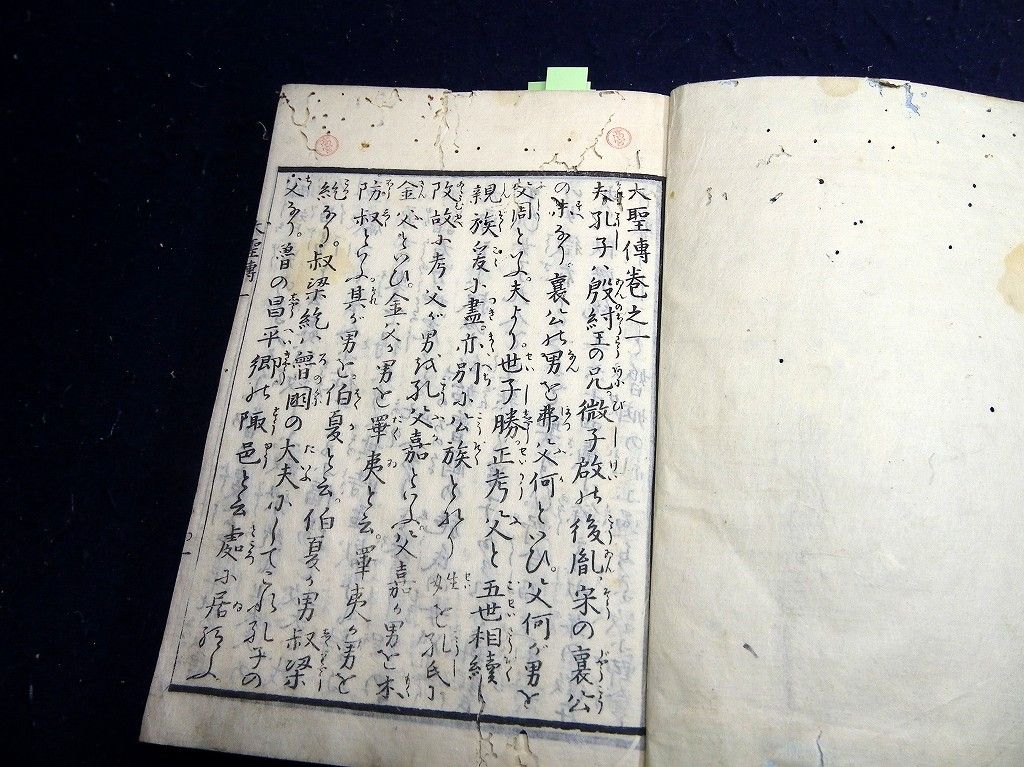 大聖傳巻之一
夫孔子ハ殷紂王の兄微子啟の後胤宋の襄公
の末なり。襄公の男を弗父何といひ。父何が男を
父周といふ。夫より世子勝正考父と五世相續し
親族爰に盡。亦別に公族となり
故に考父が男を孔父嘉といふ父嘉が男を木
金父といひ。金父が男を睪夷と云。睪夷が男を
防叔といふ其が男を伯夏と云。伯夏が男叔梁
紇なり。叔梁紇ハ魯国の大夫にしてこれ孔子の
父なり。魯の昌平郷の陬邑と云處に居給ふ
大聖傳 一